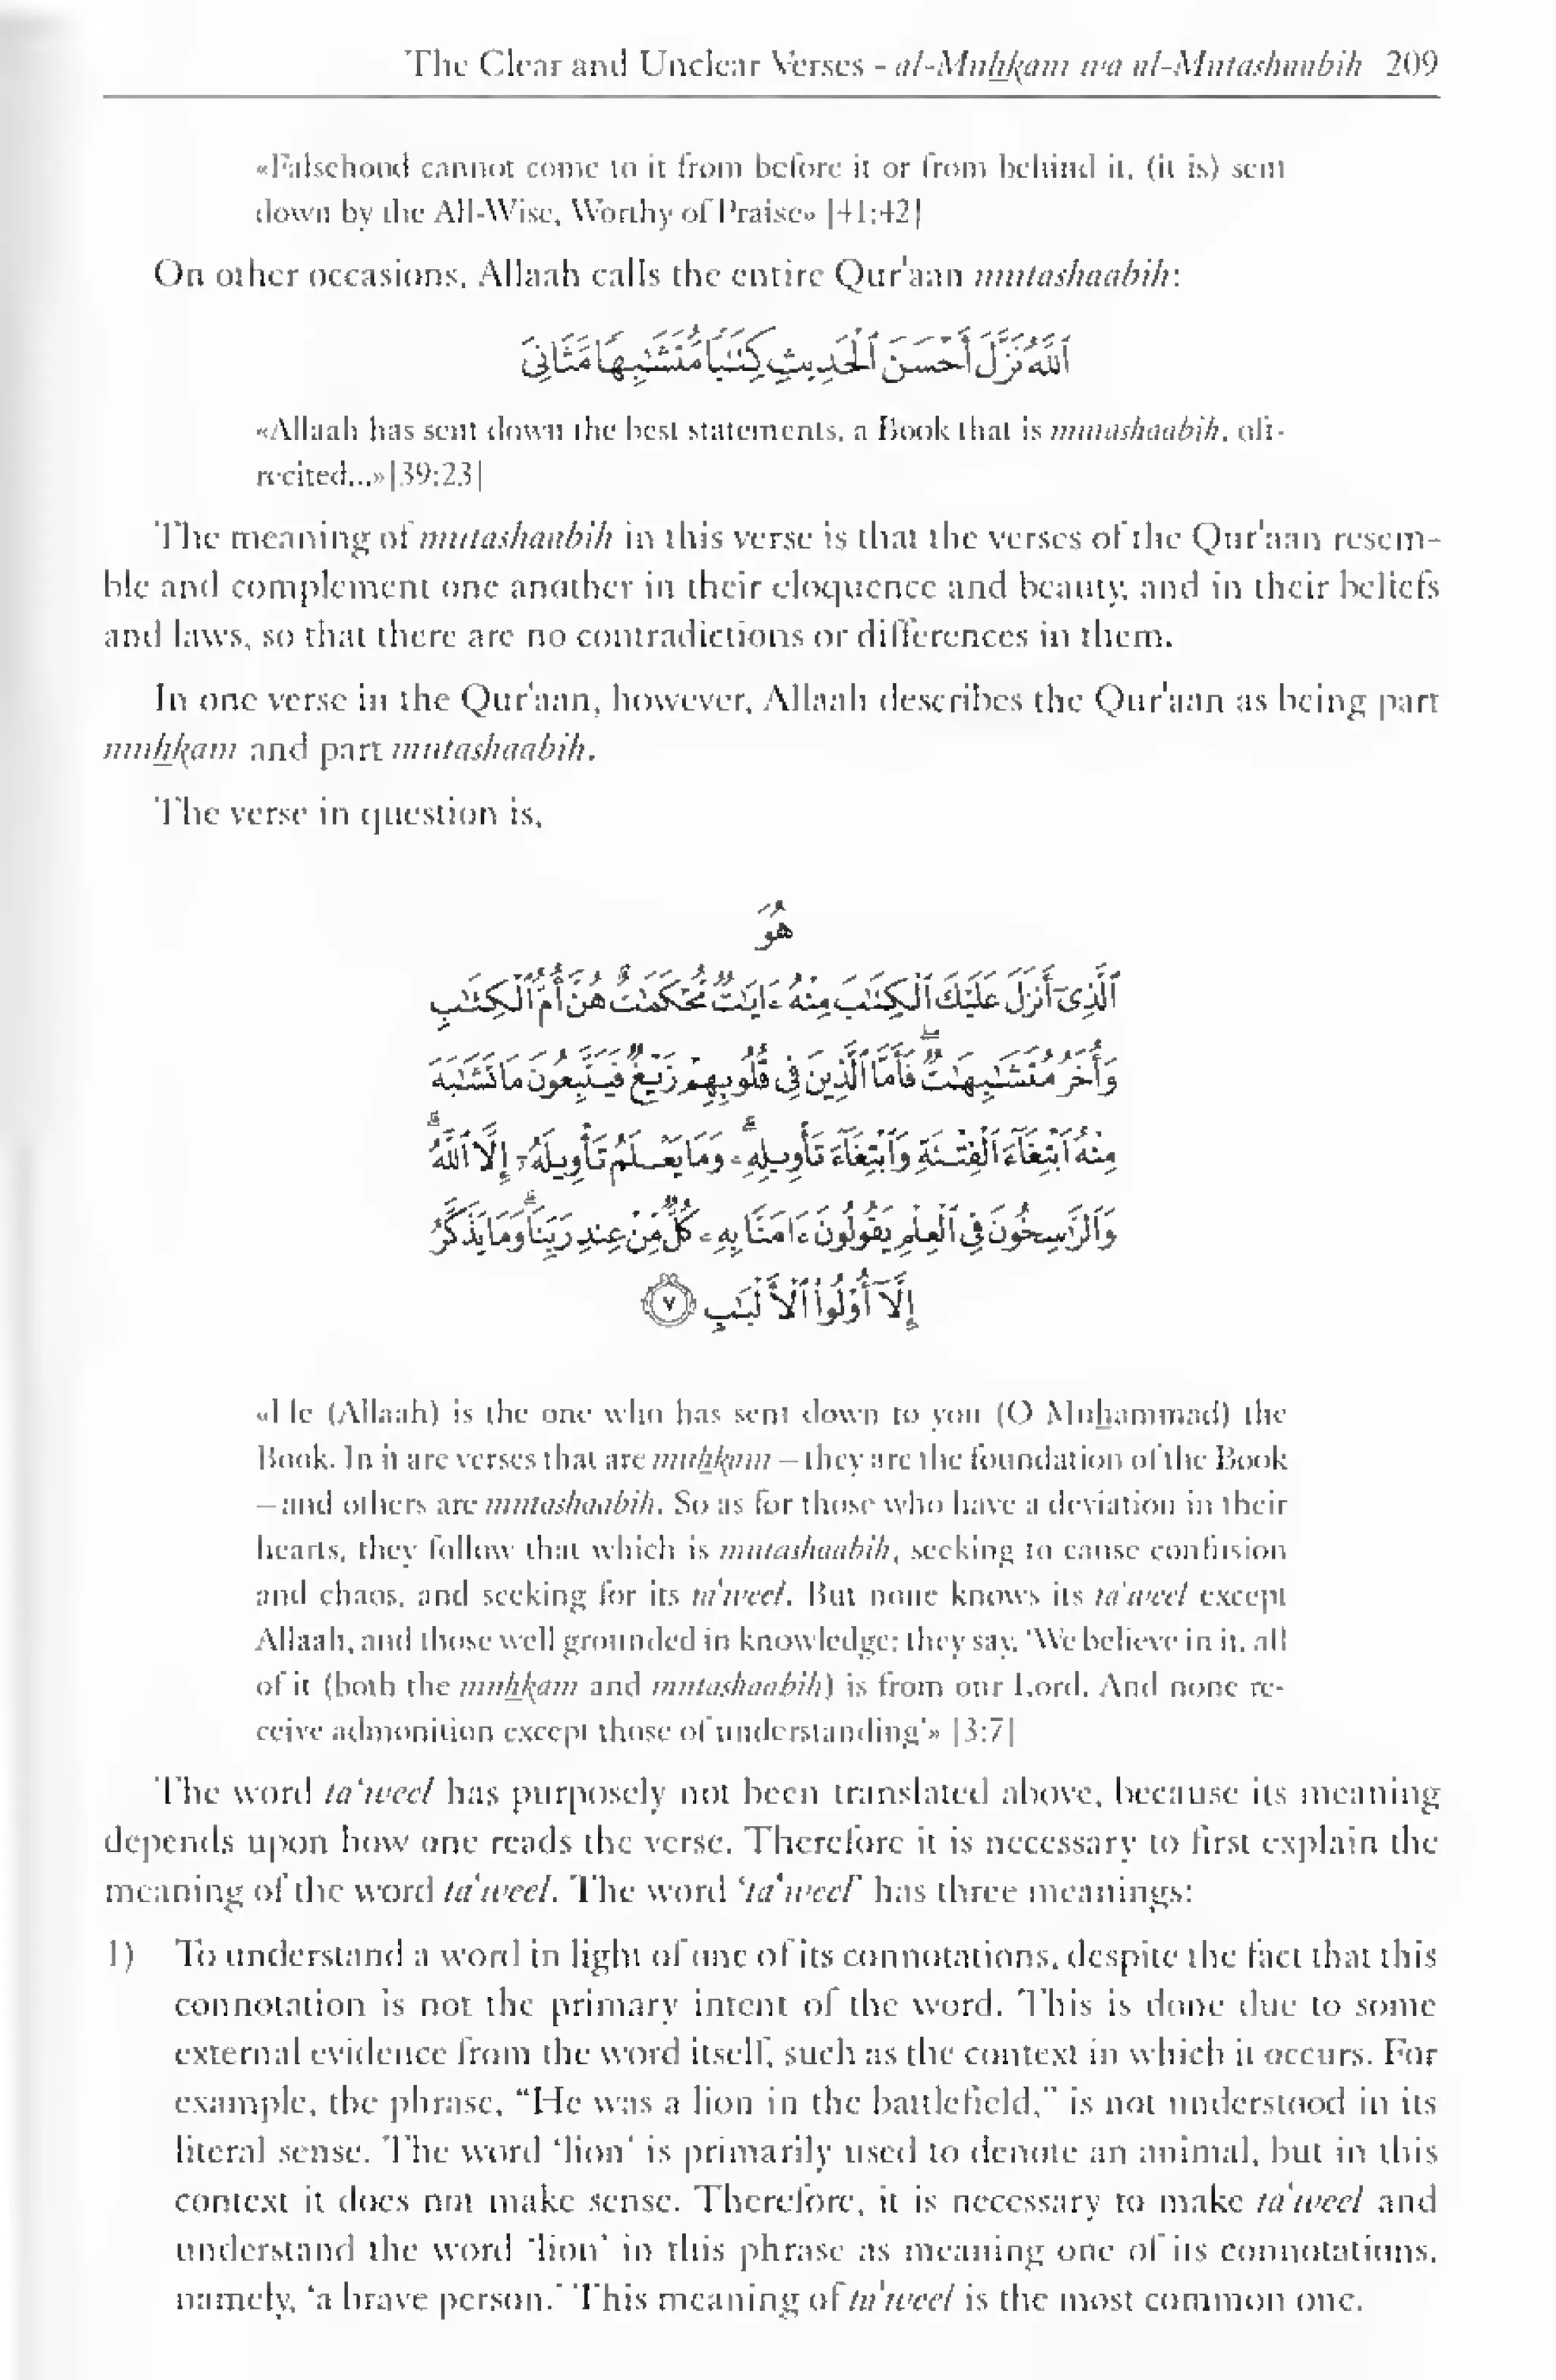 The Clear and Unclear Verses - al-Muḥkam wa al-Mutashaabih 209
«Falsehood cannot come to it from before it or from behind it, (it is) sent
down by the All-Wise, Worthy of Praise» [41:42]
On other occasions, Allaah calls the entire Qur'aan mutashaabih:
ٱللَّهُ نَزَّلَ أَحْسَنَ ٱلْحَدِيثِ كِتَٰبًا مُّتَشَٰبِهًا مَّثَانِىَ
«Allaah has sent down the best statements, a Book that is mutashaabih, oft-
recited...» [39:23]
The meaning of mutashaabih in this verse is that the verses of the Qur'aan resem-
ble and complement one another in their eloquence and beauty, and in their beliefs
and laws, so that there are no contradictions or differences in them.
In one verse in the Qur'aan, however, Allaah describes the Qur'aan as being part
muḥkam and part mutashaabih.
The verse in question is,
هُوَ
ٱلَّذِىٓ أَنزَلَ عَلَيْكَ ٱلْكِتَٰبَ مِنْهُ ءَايَٰتٌ مُّحْكَمَٰتٌ هُنَّ أُمُّ ٱلْكِتَٰبِ
وَأُخَرُ مُتَشَٰبِهَٰتٌ ۖ فَأَمَّا ٱلَّذِينَ فِى قُلُوبِهِمْ زَيْغٌ فَيَتَّبِعُونَ مَا تَشَٰبَهَ
مِنْهُ ٱبْتِغَآءَ ٱلْفِتْنَةِ وَٱبْتِغَآءَ تَأْوِيلِهِۦ ۗ وَمَا يَعْلَمُ تَأْوِيلَهُۥٓ إِلَّا ٱللَّهُ ۗ
وَٱلرَّٰسِخُونَ فِى ٱلْعِلْمِ يَقُولُونَ ءَامَنَّا بِهِۦ كُلٌّ مِّنْ عِندِ رَبِّنَا ۗ وَمَا يَذَّكَّرُ
إِلَّآ أُو۟لُوا۟ ٱلْأَلْبَٰبِ ٧
«He (Allaah) is the one who has sent down to you (O Muḥammad) the
Book. In it are verses that are muḥkam – they are the foundation of the Book
– and others are mutashaabih. So as for those who have a deviation in their
hearts, they follow that which is mutashaabih, seeking to cause confusion
and chaos, and seeking for its ta'weel. But none knows its ta'weel except
Allaah, and those well grounded in knowledge; they say, 'We believe in it, all
of it (both the muḥkam and mutashaabih) is from our Lord. And none re-
ceive admonition except those of understanding'» [3:7]
The word ta'weel has purposely not been translated above, because its meaning
depends upon how one reads the verse. Therefore it is necessary to first explain the
meaning of the word ta'weel. The word 'ta'weel' has three meanings:
1) To understand a word in light of one of its connotations, despite the fact that this
connotation is not the primary intent of the word. This is done due to some
external evidence from the word itself, such as the context in which it occurs. For
example, the phrase, "He was a lion in the battlefield," is not understood in its
literal sense. The word 'lion' is primarily used to denote an animal, but in this
context it does not make sense. Therefore, it is necessary to make ta'weel and
understand the word 'lion' in this phrase as meaning one of its connotations,
namely, 'a brave person.' This meaning of ta'weel is the most common one.